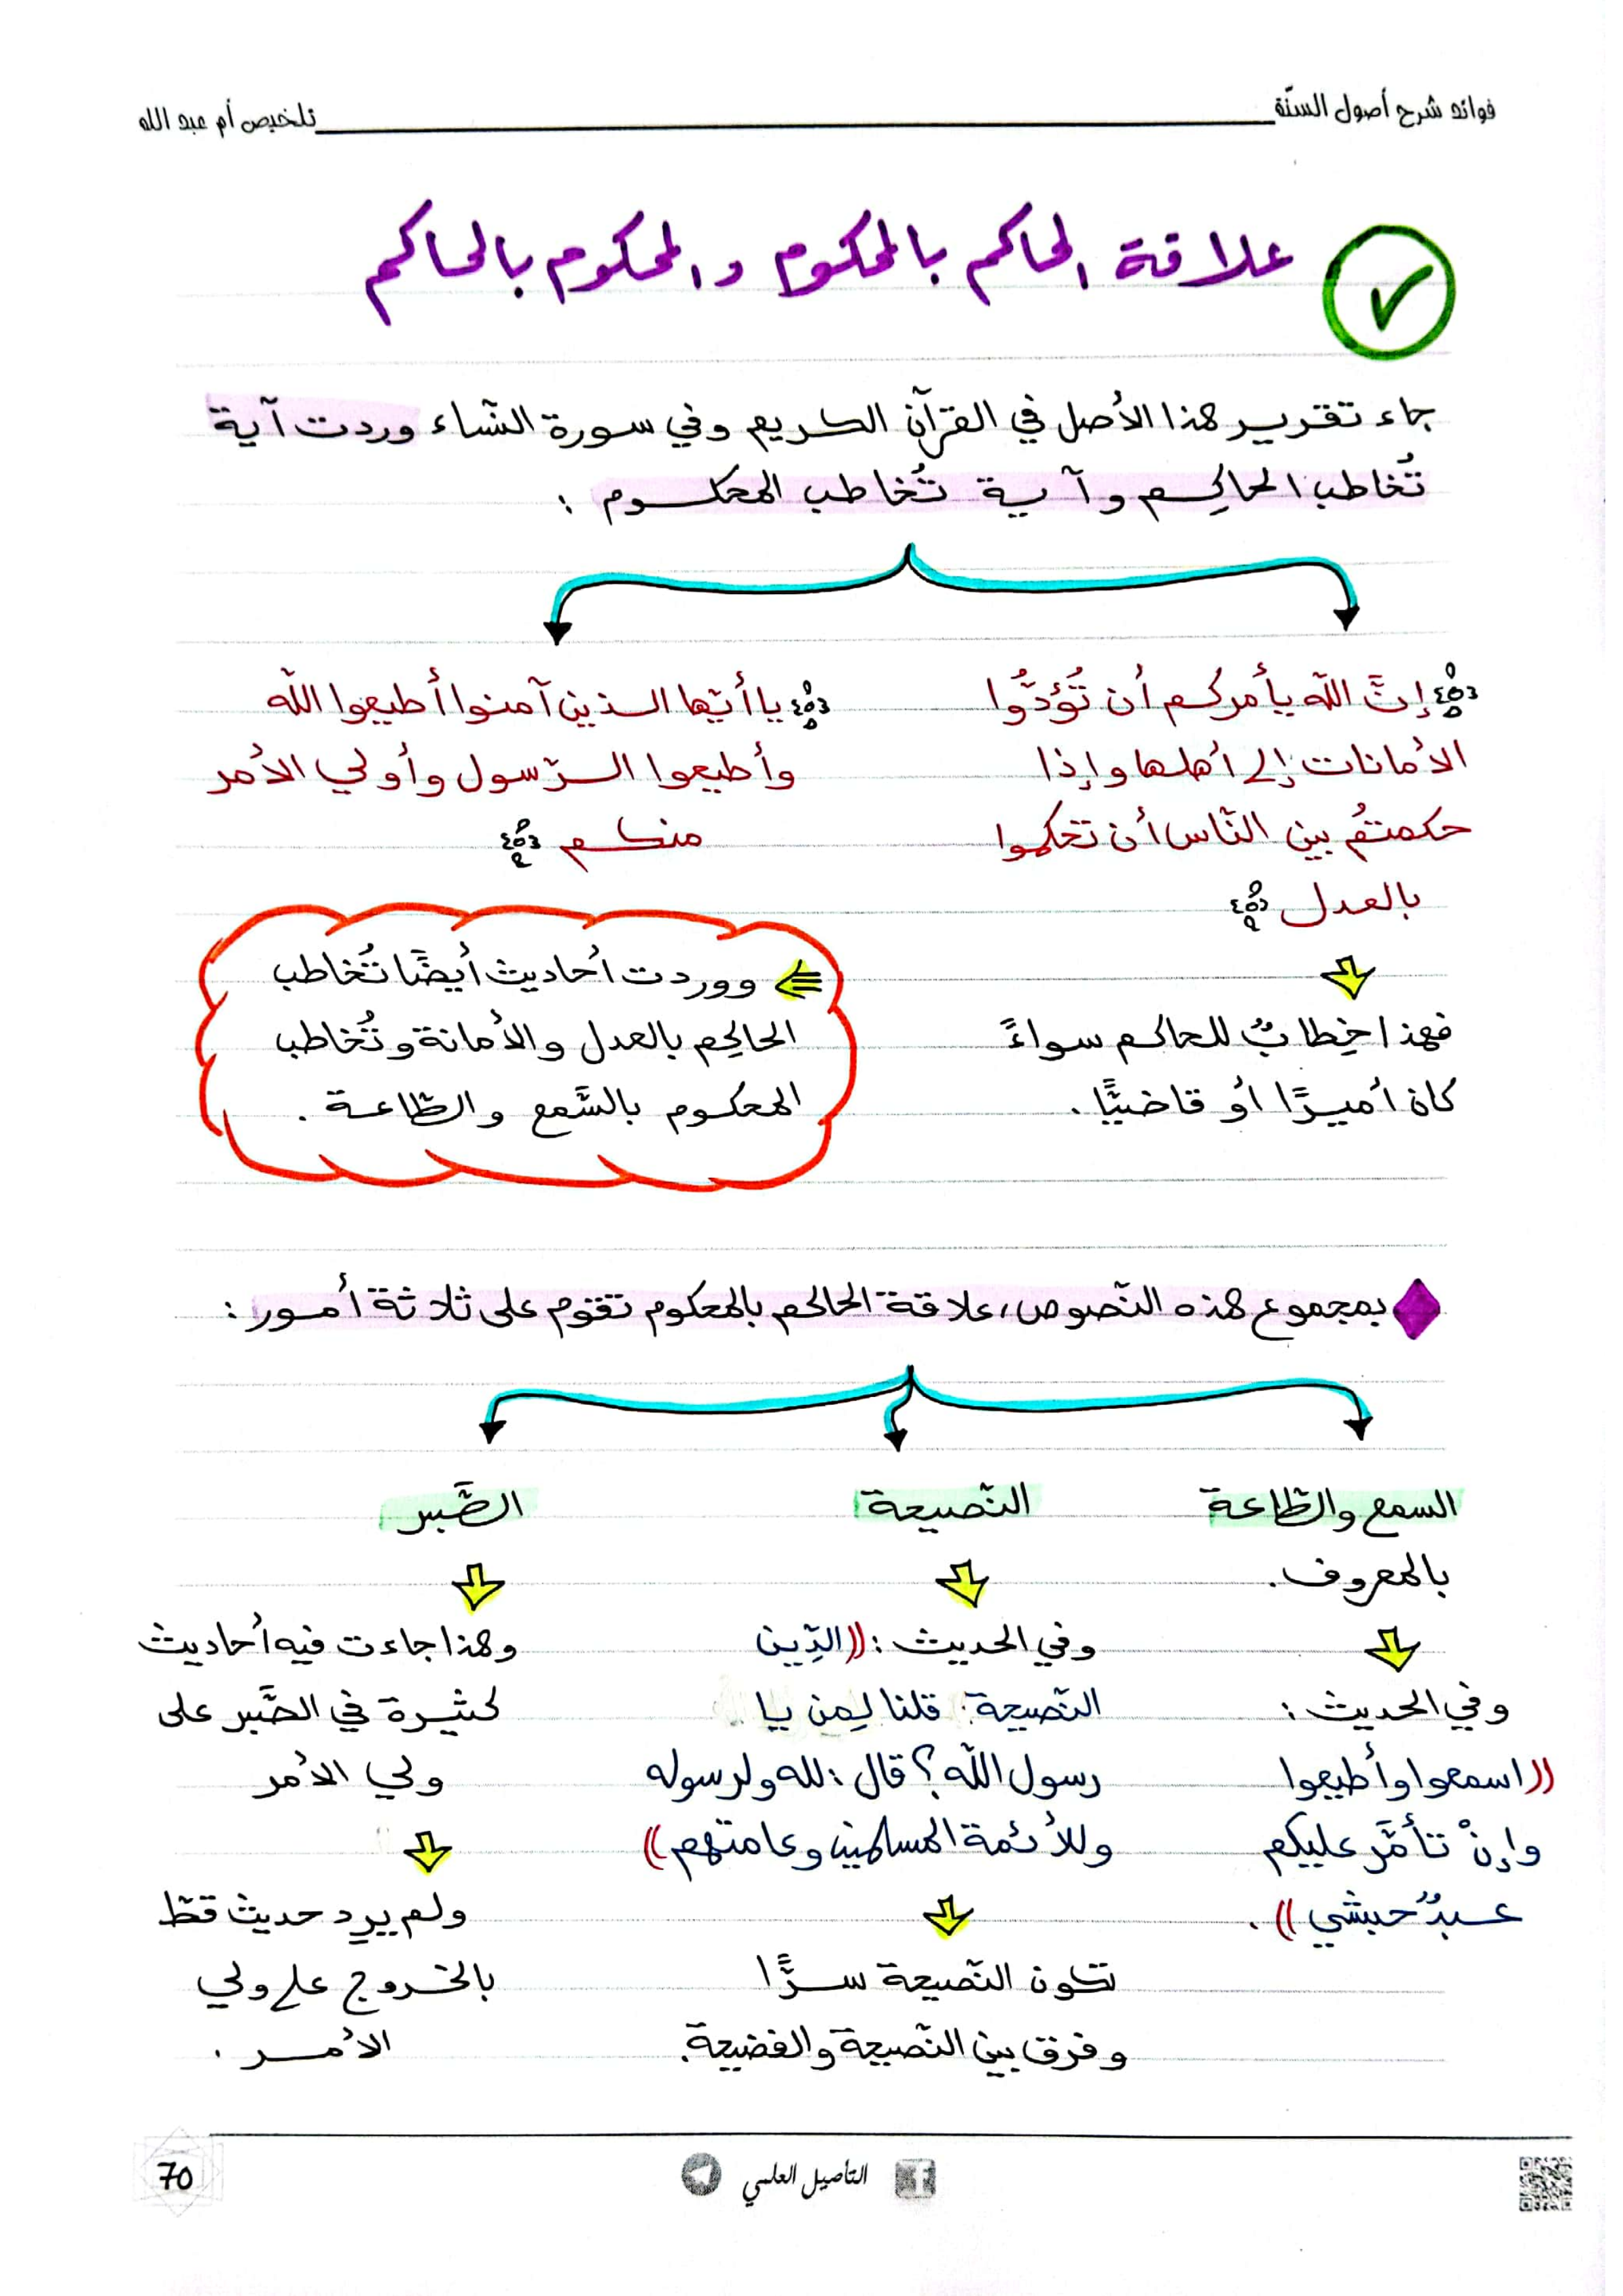 فوائد شرح أصول السنّة
تلخيص أم عبد الله
علاقة الحاكم بالمحكوم والمحكوم بالحاكم
جاء تقرير هذا الأصل في القرآن الكريم وفي سورة النّساء وردت آية
تُخاطب الحاكِم وآية تُخاطب المحكوم :
إنَّ اللّه يأمركم أن تُؤدّوا
الأمانات إلى أهلها وإذا
حكمتمُ بين النّاس أن تحكموا
بالعدل
فهذا خِطابٌ للحاكم سواءً
كان أميرًا أو قاضيًّا.
يا أيّها الذين آمنوا أطيعوا اللّه
وأطيعوا الرّسول وأولي الأمر
منكم
ووردت أحاديث أيضًا تُخاطب
الحاكِم بالعدل والأمانة وتُخاطب
المحكوم بالسَّمع والطّاعة .
بمجموع هذه النّصوص، علاقة الحاكم بالمحكوم تقوم على ثلاثة أمور :
السمع والطّاعة
بالمعروف.
وفي الحديث :
((اسمعوا وأطيعوا
وإنْ تأمَّر عليكم
عبدٌ حبشي)).
النّصيحة
وفي الحديث : ((الدِّين
النّصيحة: قلنا لِمن يا
رسول اللّه؟ قال : لله ولرسوله
وللأئمة المسلمين وعامتهم))
تكون النّصيحة سرًّا
وفرق بين النّصيحة والفضيحة.
الصَّبر
وهذا جاءت فيه أحاديث
كثيرة في الصَّبر على
ولي الأمر
ولم يرد حديث قطّ
بالخروج على ولي
الأمر .
التأصيل العلمي
70